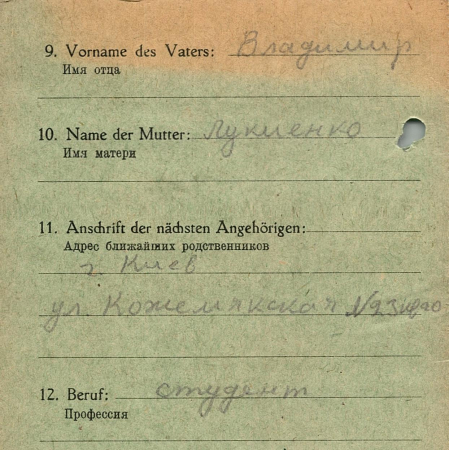 9. Vorname des Vaters: Владимир
Имя отца
10. Name der Mutter: Лукиенко
Имя матери
11. Anschrift der nächsten Angehörigen:
Адрес ближайших родственников
г. Киев
ул. Кожемякская №23
12. Beruf: студент
Профессия